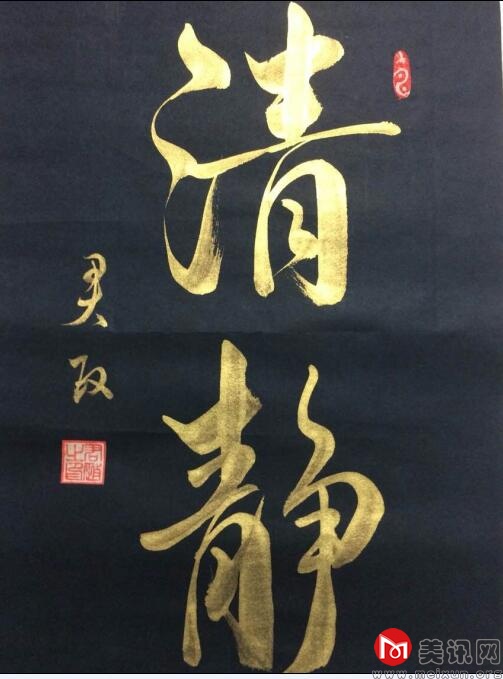 清静
美讯网
www.meixun.org